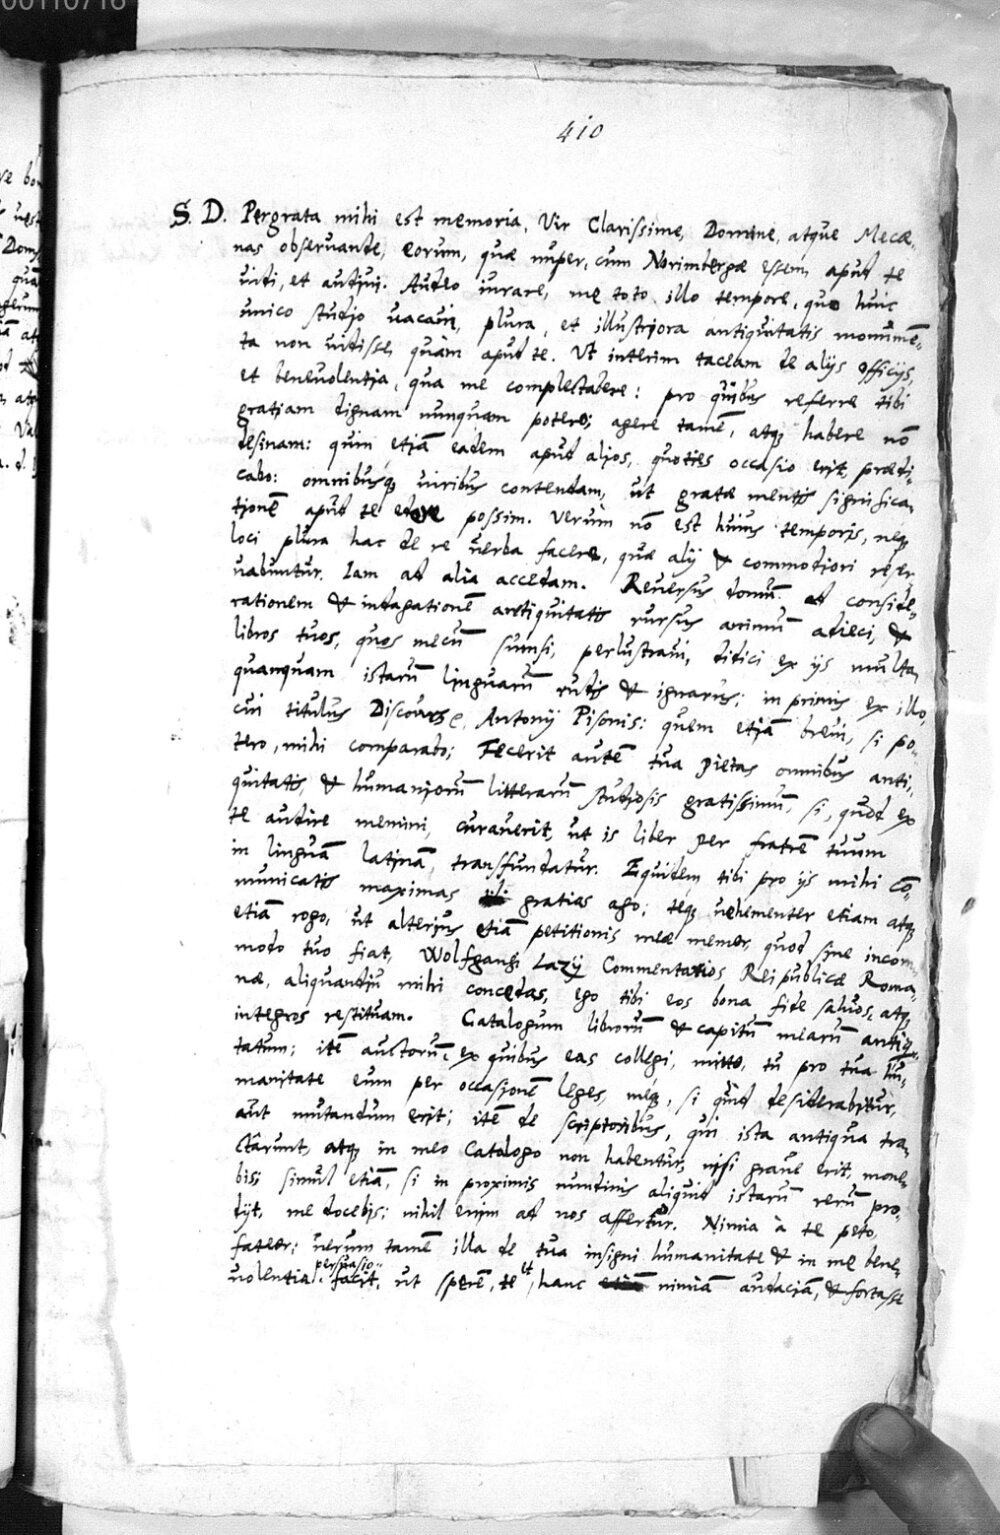 00110716
410
S. D. Pergrata mihi est memoria, Vir Clarissime, Domine, atque Mecæ-
nas observande, eorum, quæ nuper, cum Norimbergæ essem, apud te
vidi, et audivi. Audeo iurare, me toto illo tempore, quo huic
unico studio vacavi, plura, et illustriora antiquitatis monumē-
ta non vidisse, quàm apud te. Ut interim taceam de alijs officijs,
et benevolentia, qua me complectabere: pro quibus referre tibi
gratiam dignam nunquam potero; agere tamē, atq; habere nō
desinam: quin etiā eadem apud alios, quoties occasio erit, prædi-
cabo: omnibusq; viribus contendam, ut gratæ mentis significa-
tionē apud te edere possim. Verùm nō est huius temporis, neq;
loci plura hac de re verba facere, quæ alij & commodiori reser-
vabuntur. Iam ad alia accedam. Reversus domū ad conside-
rationem & indagationē antiquitatis rursus animū adieci, &
libros tuos, quos mecū sumsi, perlustravi, didici ex ijs multa,
quanquam istarū linguarū rudis & ignarus; in primis ex illo,
cui titulus Discourse, Antonij Pisonis: quem etiā brevi, si po-
tero, mihi comparabo; Fecerit autē tua pietas omnibus anti-
quitatis, & humaniorū litterarū studiosis gratissimū, si, quod ex
te audire memini, curaverit, ut is liber per fratrē tuum
in linguā latinā transfundatur. Equidem tibi pro ijs mihi cō-
municatis maximas gratias ago; teq; vehementer etiam atq;
etiā rogo, ut alterius etiā petitionis meæ memor, quod sine incom-
modo tuo fiat, Wolfgangi Lazij Commentarios Reipublicæ Roma-
næ, aliquandiu mihi concedas, ego tibi eos bona fide salvos, atq;
integros restituam. Catalogum librorū & capitū mearū antiq-
tatum; itē auctorū, ex quibus eas collegi, mitto, tu pro tua hu-
manitate eum per occasionē leges, meq; si quid desiderabitur,
aut mutandum erit; itē de scriptoribus, qui ista antiqua tra-
ctarunt, atq; in meo Catalogo non habentur, nisi grave erit, mone-
bis; simul etiā, si in proximis nundinis aliquid istarū rerū pro-
dijt, me docebis; nihil enim ad nos affertur. Nimia à te peto,
fateor; verum tamē illa de tua insigni humanitate & in me bene-
volentia persuasio facit, ut sperē, te, ut hanc nimiā audaciā, & fortasse